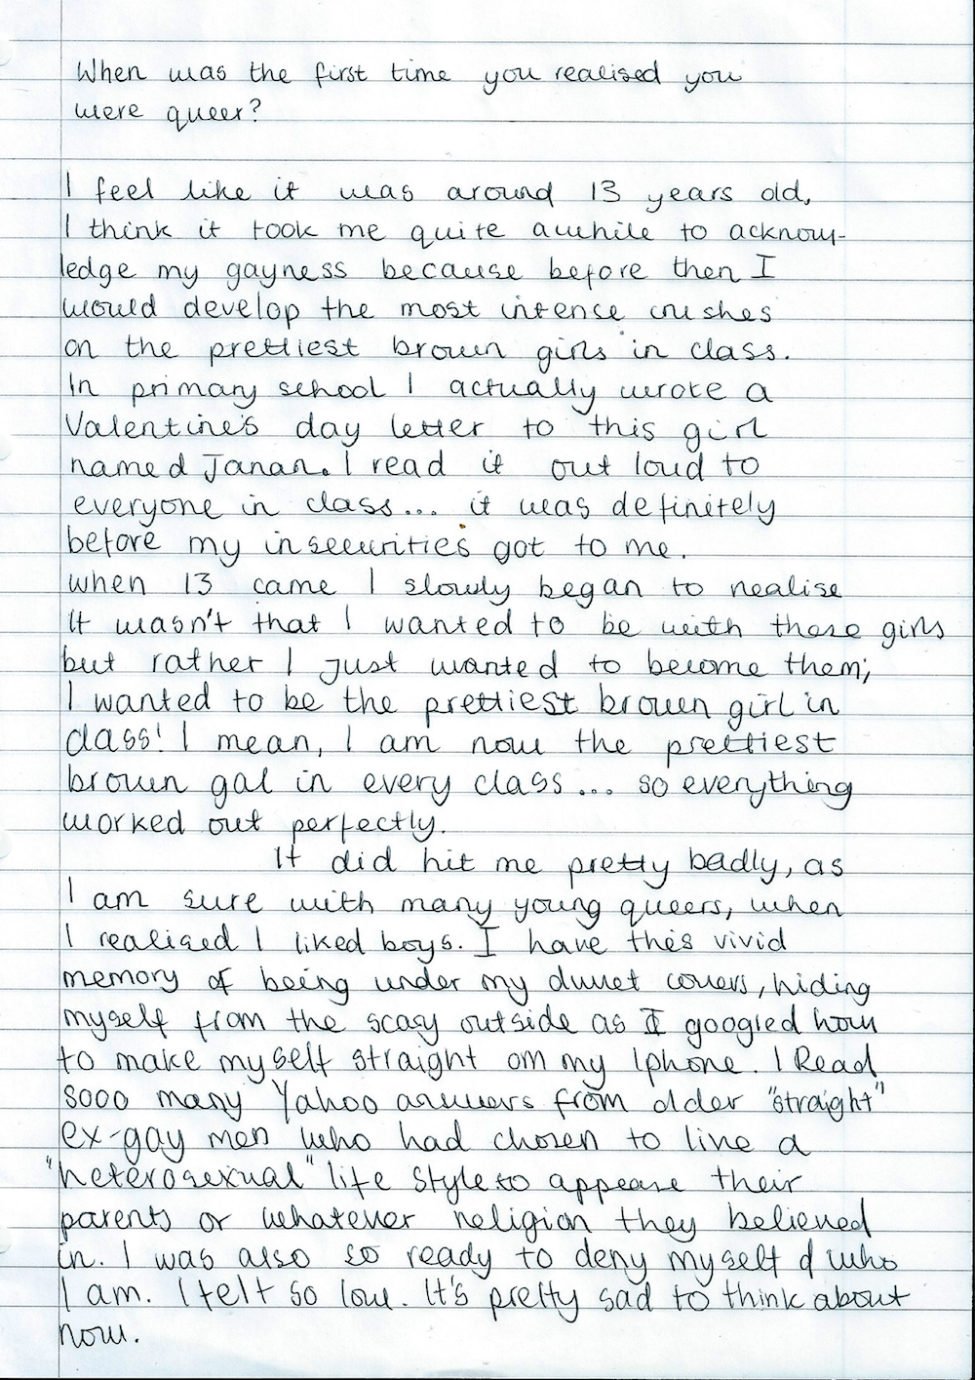 When was the first time you realised you
were queer?
I feel like it was around 13 years old,
I think it took me quite awhile to acknow-
ledge my gayness because before then I
would develop the most intense crushes
on the prettiest brown girls in class.
In primary school I actually wrote a
Valentine's day letter to this girl
named Janan. I read it out loud to
everyone in class... it was definitely
before my insecurities got to me.
when 13 came I slowly began to realise
It wasn't that I wanted to be with these girls
but rather I just wanted to become them;
I wanted to be the prettiest brown girl in
class! I mean, I am now the prettiest
brown gal in every class... so everything
worked out perfectly.
It did hit me pretty badly, as
I am sure with many young queers, when
I realised I liked boys. I have this vivid
memory of being under my duvet covers, hiding
myself from the scary outside as I googled how
to make myself straight on my Iphone. I Read
sooo many Yahoo answers from older "straight"
ex-gay men who had chosen to live a
"heterosexual" life style to appease their
parents or whatever religion they believed
in. I was also so ready to deny myself of who
I am. I felt so low. It's pretty sad to think about
now.